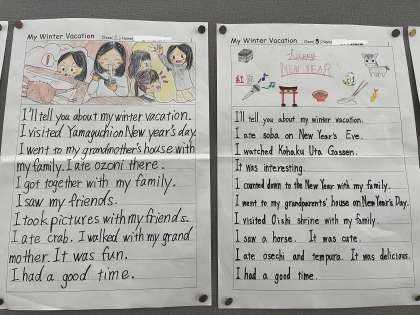 My Winter Vacation Class Name
I'll tell you about my winter vacation.
I visited Yamaguchi on New year's day.
I went to my grandmother's house with
my family. I ate ozoni there.
I got together with my family.
I saw my friends.
I took pictures with my friends.
I ate crab. I walked with my grand
mother. It was fun.
I had a good time.
My Winter Vacation Class 3 Name
HAPPY
NEW YEAR
紅
I'll tell you about my winter vacation.
I ate soba on New Year's Eve.
I watched Kohaku Uta Gassen.
It was interesting.
I counted down to the New Year with my family.
I went to my grandparents' house on New Year's Day.
I visited Oishi shrine with my family.
I saw a horse. It was cute.
I ate osechi and tempura. It was delicious.
I had a good time.